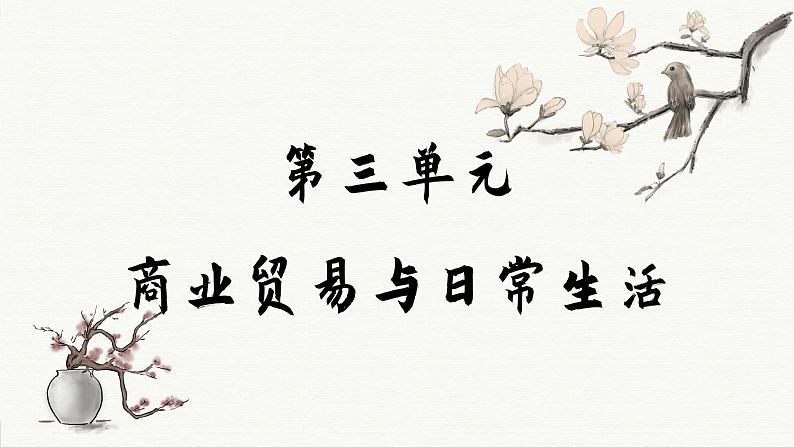 第三单元
商业贸易与日常生活